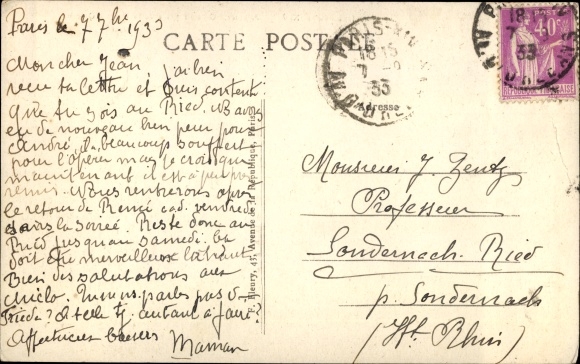 Paris le 7 7bre 1933
CARTE POSTALE
Mon cher Jean j'ai bien
reçu ta lettre et suis contente
que tu sois au Ried. Nous avons
eu de nouveau bien peur pour
André, il a beaucoup souffert
pour l'opérer mais je crois que
maintenant il est à peu près
remis. Nous rentrerons après
le retour de René cad. vendredi
dans la soirée. Reste donc au
Ried jusqu'au samedi. Ce
doit être merveilleux là-haut
Bien des salutations aux
Tu ne nous parles pas de
Frieda? A-t-elle tj. autant à faire?
Affectueux baisers
Maman
Fleury, 45, Avenue de la République, Paris
PARIS
18 15
7 - 9
33
Adresse
Monsieur J. Zentz
Professeur
Sondernach-Ried
p. Sondernach
(Ht. Rhin)
18
7
33
40c
REPUBLIQUE FRANÇAISE